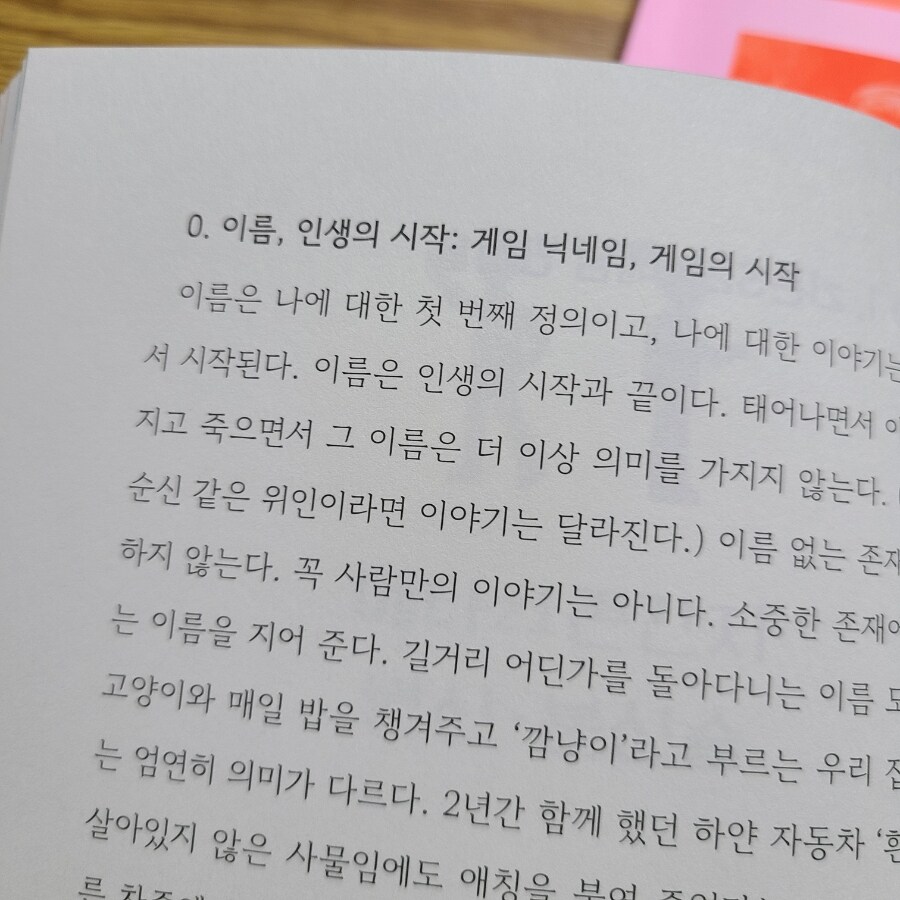 0. 이름, 인생의 시작: 게임 닉네임, 게임의 시작
이름은 나에 대한 첫 번째 정의이고, 나에 대한 이야기는
서 시작된다. 이름은 인생의 시작과 끝이다. 태어나면서
지고 죽으면서 그 이름은 더 이상 의미를 가지지 않는다.
순신 같은 위인이라면 이야기는 달라진다.) 이름 없는 존재
하지 않는다. 꼭 사람만의 이야기는 아니다. 소중한 존재에
는 이름을 지어 준다. 길거리 어딘가를 돌아다니는 이름
고양이와 매일 밥을 챙겨주고 ‘깜냥이’라고 부르는 우리
는 엄연히 의미가 다르다. 2년간 함께 했던 하얀 자동차
살아있지 않은 사물임에도 애칭을 붙여
른